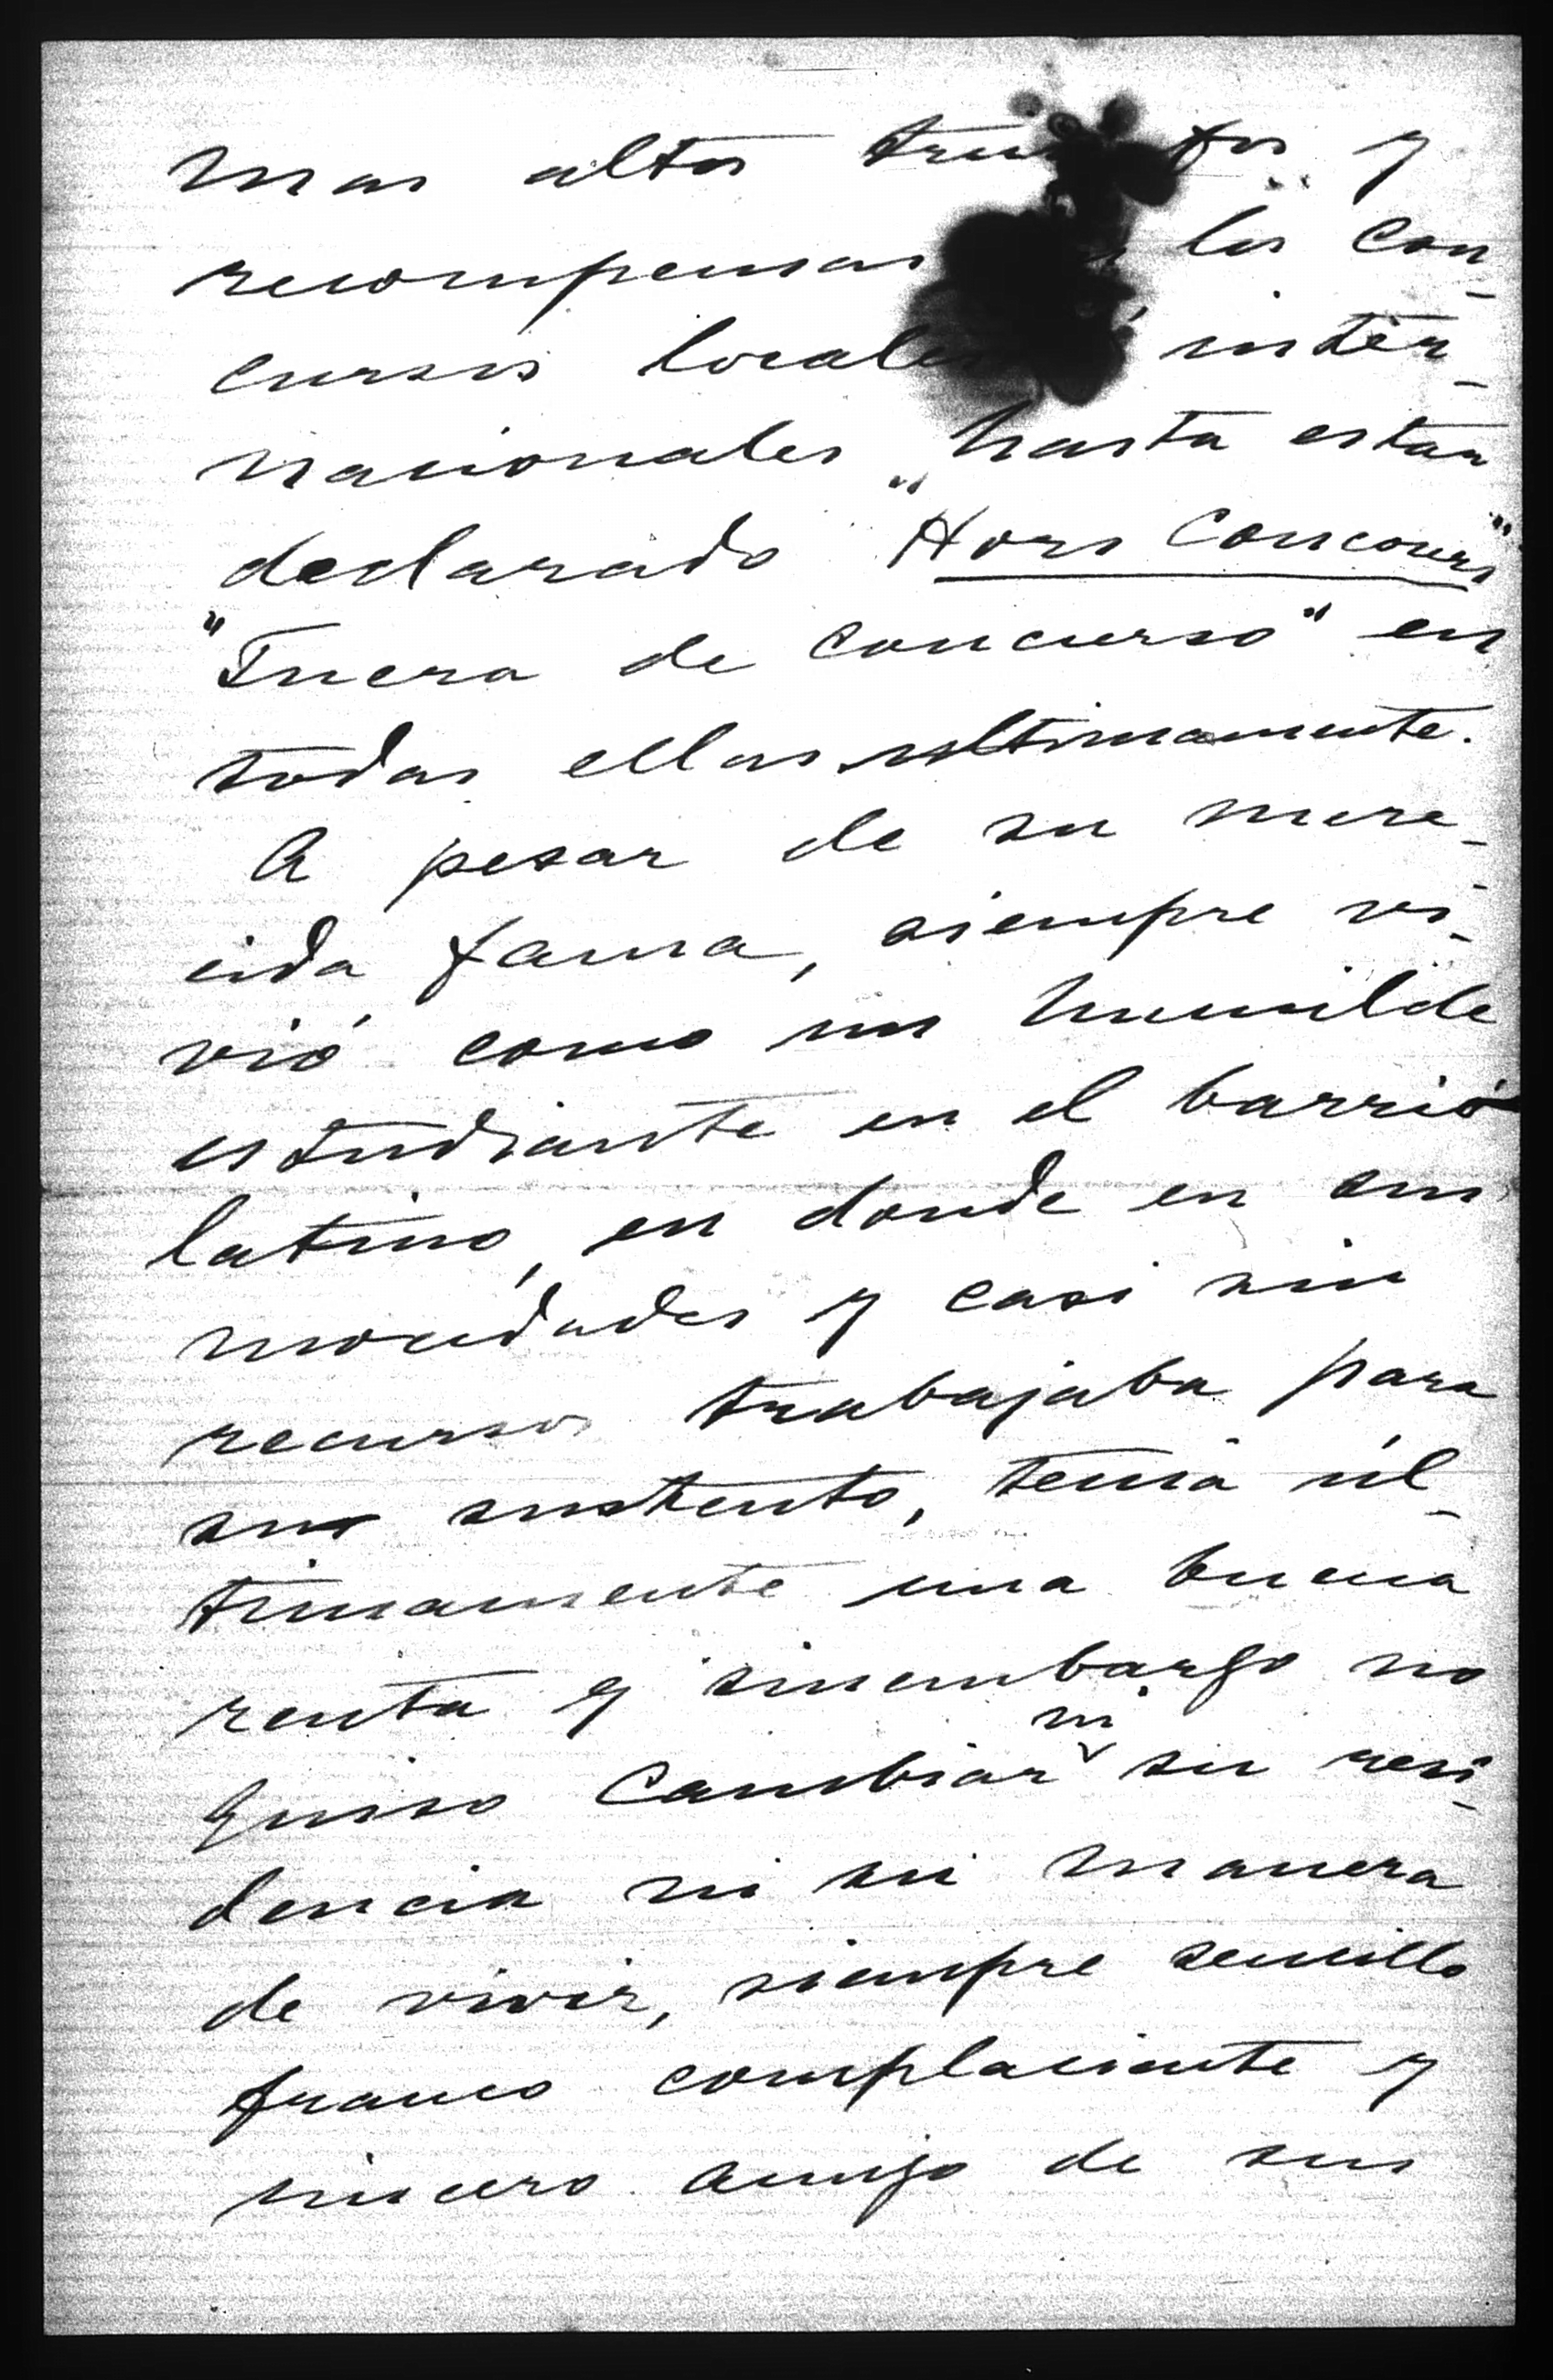 mas altos triunfos y
recompensas los con-
cursos locales é inter-
nacionales hasta estar
declarado "Hors Concours"
"Fuera de concurso" en
todas ellas ultimamente.
A pesar de su mere-
cida fama, siempre vi-
vió como un humilde
estudiante en el barrio
latino, en donde en sus
mocedades y casi sin
recursos trabajaba para
su sustento, tenia úl-
timamente una buena
renta y sinembargo no
quiso cambiar ni su resi-
dencia ni su manera
de vivir, siempre sencillo
franco complaciente y
sincero amigo de sus